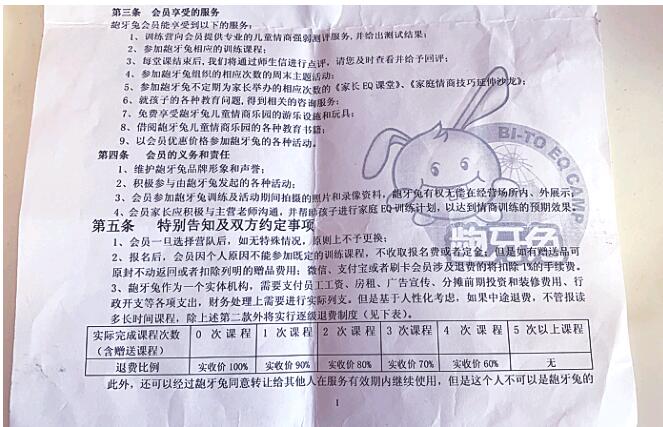 第三条　会员享受的服务
龅牙兔会员能享受到以下的服务:
1、训练营向会员提供专业的儿童情商强弱测评服务,并给出测试结果;
2、参加龅牙兔相应的训练课程;
3、每堂课结束后,我们将通过师生信进行点评,请您及时查看并给予回评;
4、参加龅牙兔组织的相应次数的周末主题活动;
5、参加龅牙兔不定期为家长举办的相应次数的《家长EQ课堂》、《家庭情商技巧延伸沙龙》;
6、就孩子的各种教育问题,得到相关的咨询服务;
7、免费享受龅牙兔儿童情商乐园的游乐设施和玩具;
8、借阅龅牙兔儿童情商乐园的各种教育书籍;
9、以会员优惠价格参加龅牙兔的各种活动。
第四条　会员的义务和责任
1、维护龅牙兔品牌形象和声誉;
2、积极参与由龅牙兔发起的各种活动;
3、会员参加龅牙兔训练及活动期间拍摄的照片和录像资料,龅牙兔有权无偿在经营场所内、外展示。
4、会员家长应积极与主营老师沟通,并帮助孩子进行家庭EQ训练计划,以达到情商训练的预期效果。
第五条　特别告知及双方约定事项
1、会员一旦选择营队后,如无特殊情况,原则上不予更换;
2、报名后,会员因个人原因不能参加既定的训练课程,不收取报名费或者定金;但是如有赠送品可
原封不动返回或者扣除列明的赠品费用;微信、支付宝或者刷卡会员涉及退费的将扣除1%的手续费。
3、龅牙兔作为一个实体机构,需要支付员工工资、房租、广告宣传、分摊前期投资和装修费用、行
政开支等各项支出,财务处理上需要进行实际列支。但是基于人性化考虑,如果中途退费,不管报读
多长时间课程,除上述第二款外将实行逐级退费制度(见下表)。
实际完成课程次数(含赠送课程) 0次课程 1次课程 2次课程 3次课程 4次课程 5次以上课程
退费比例 实收价100% 实收价90% 实收价80% 实收价70% 实收价60% 无
此外,还可以经过龅牙兔同意转让给其他人在服务有效期内继续使用,但是这个人不可以是龅牙兔的
1
BI-TO EQ CAMP
龅牙兔